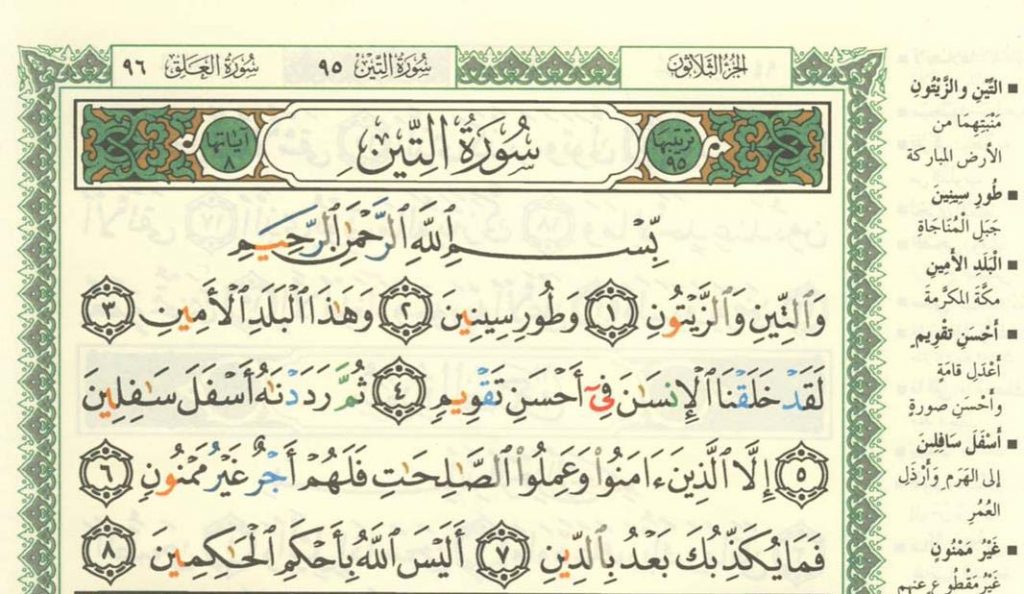 الجزء الثلاثون
سُورَةُ التِّينِ ٩٥
سُورَةُ العَلَقِ ٩٦
ترتيبها ٩٥
سُورَةُ التِّينِ
آياتها ٨
بِسْمِ ٱللَّهِ ٱلرَّحْمَٰنِ ٱلرَّحِيمِ
وَٱلتِّينِ وَٱلزَّيْتُونِ ١ وَطُورِ سِينِينَ ٢ وَهَٰذَا ٱلْبَلَدِ ٱلْأَمِينِ ٣
لَقَدْ خَلَقْنَا ٱلْإِنسَٰنَ فِىٓ أَحْسَنِ تَقْوِيمٍ ٤ ثُمَّ رَدَدْنَٰهُ أَسْفَلَ سَٰفِلِينَ
٥ إِلَّا ٱلَّذِينَ ءَامَنُوا۟ وَعَمِلُوا۟ ٱلصَّٰلِحَٰتِ فَلَهُمْ أَجْرٌ غَيْرُ مَمْنُونٍ ٦
فَمَا يُكَذِّبُكَ بَعْدُ بِٱلدِّينِ ٧ أَلَيْسَ ٱللَّهُ بِأَحْكَمِ ٱلْحَٰكِمِينَ ٨
■ التِّينِ والزَّيْتُونِ
مَنْبَتِهِمَا من
الأرض المباركة
■ طُورِ سِينِينَ
جَبَلِ الْمُنَاجَاةِ
■ الْبَلَدِ الأَمِينِ
مكَّةَ المكرَّمةَ
■ أَحْسَنِ تَقْوِيمٍ
أَعْدَلِ قامَة
وأَحْسَنِ صورةٍ
■ أَسْفَلَ سَافِلِينَ
إلى الهَرَم وَأَرْذَلِ
العُمُرِ
■ غَيْرُ مَمْنُونٍ
غَيْرُ مَقْطُوعٍ عنهم